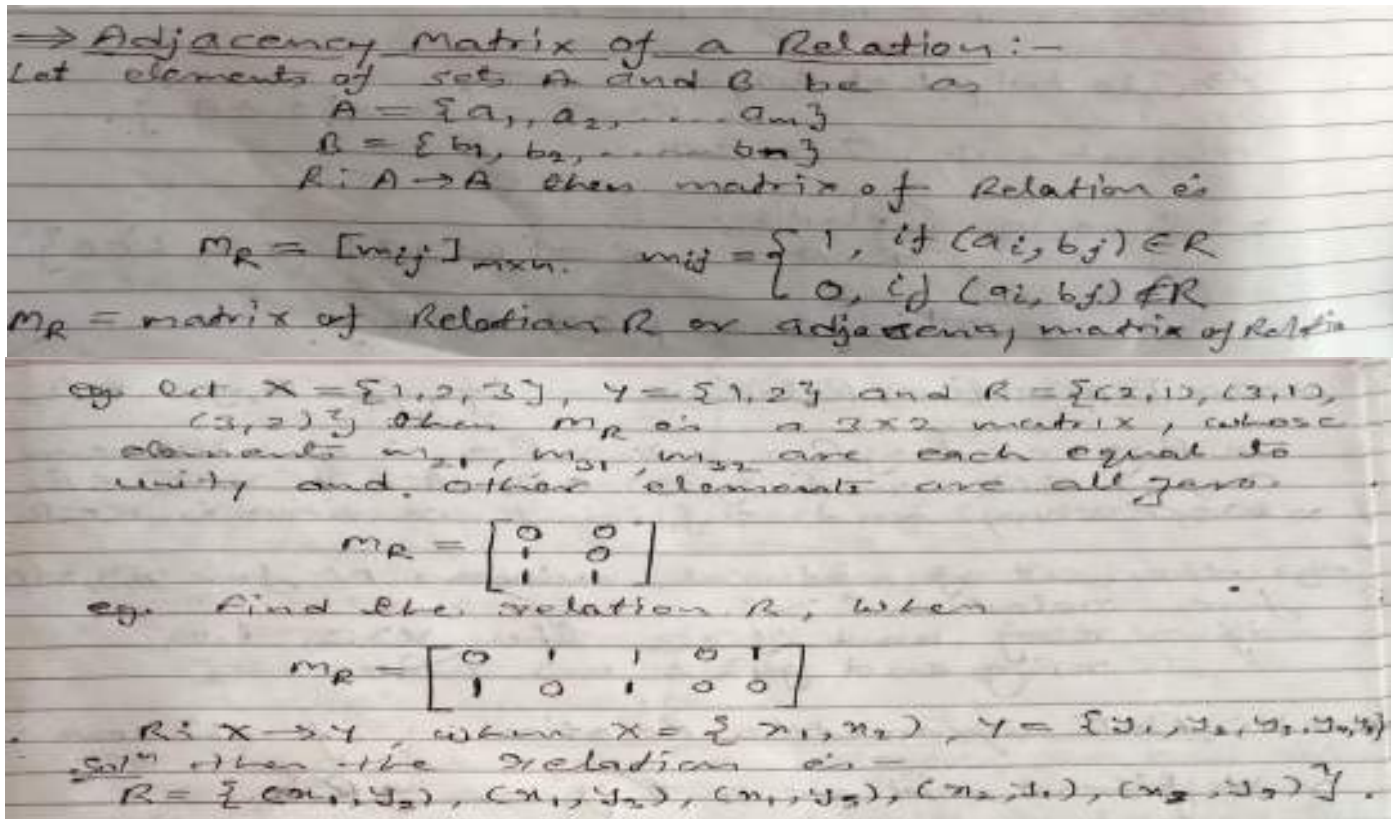 ⇒ Adjacency Matrix of a Relation :-
Let elements of sets A and B be as
A = {a1, a2, ..... am}
B = {b1, b2, ..... bn}
R : A → B then matrix of Relation is
MR = [mij]mxn. mij = { 1, if (ai, bj) ∈ R
0, if (ai, bj) ∉ R
MR = matrix of Relation R or adjacency matrix of Relatio
eg. Let X = {1, 2, 3}, Y = {1, 2} and R = {(2, 1), (3, 1),
(3, 2)} then MR is a 3x2 matrix, whose
elements m21, m31, m32 are each equal to
unity and other elements are all zero.
MR = [ 0 0
1 0
1 1 ]
eg. Find the relation R, when
MR = [ 0 1 1 0 1
1 0 1 0 0 ]
R : X → Y, when X = { x1, x2 }, Y = { y1, y2, y3, y4, y5}
Solⁿ then the relation is -
R = { (x1, y2), (x1, y3), (x1, y5), (x2, y1), (x2, y3) }.